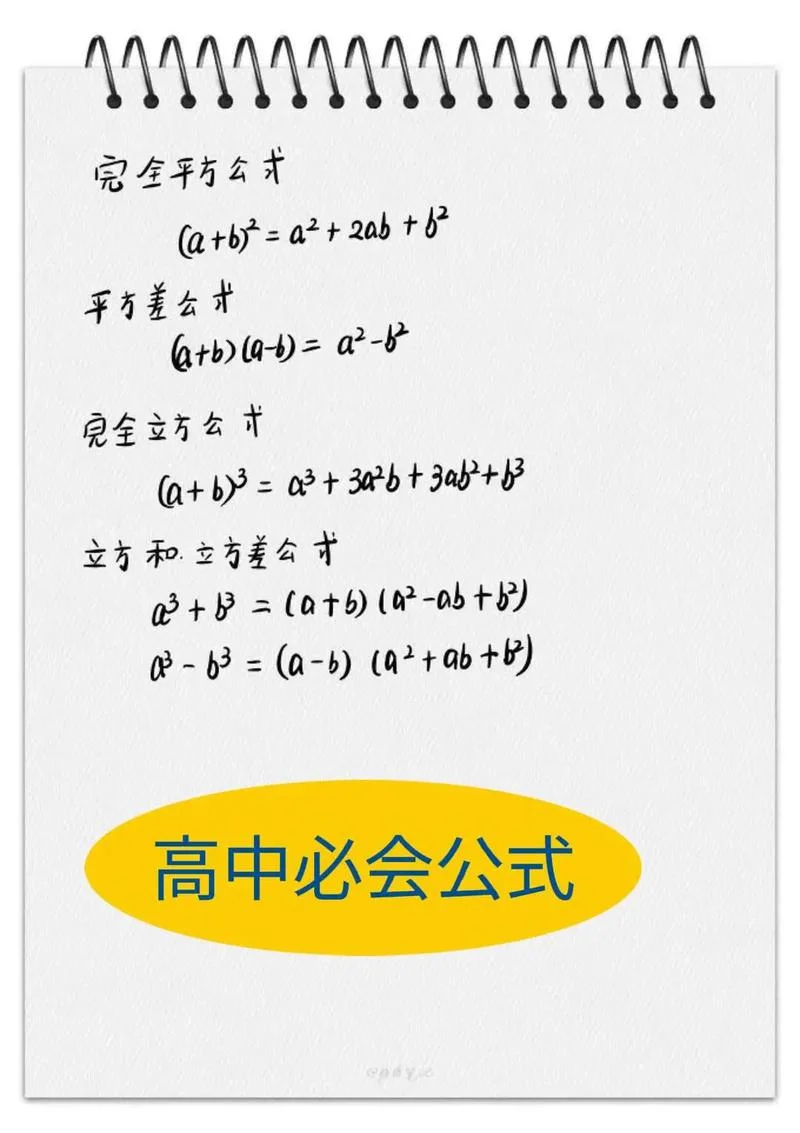 完全平方公式
(a+b)² = a² + 2ab + b²
平方差公式
(a+b)(a-b) = a² - b²
完全立方公式
(a+b)³ = a³ + 3a²b + 3ab² + b³
立方和.立方差公式
a³ + b³ = (a+b)(a² - ab + b²)
a³ - b³ = (a-b)(a² + ab + b²)
高中必会公式